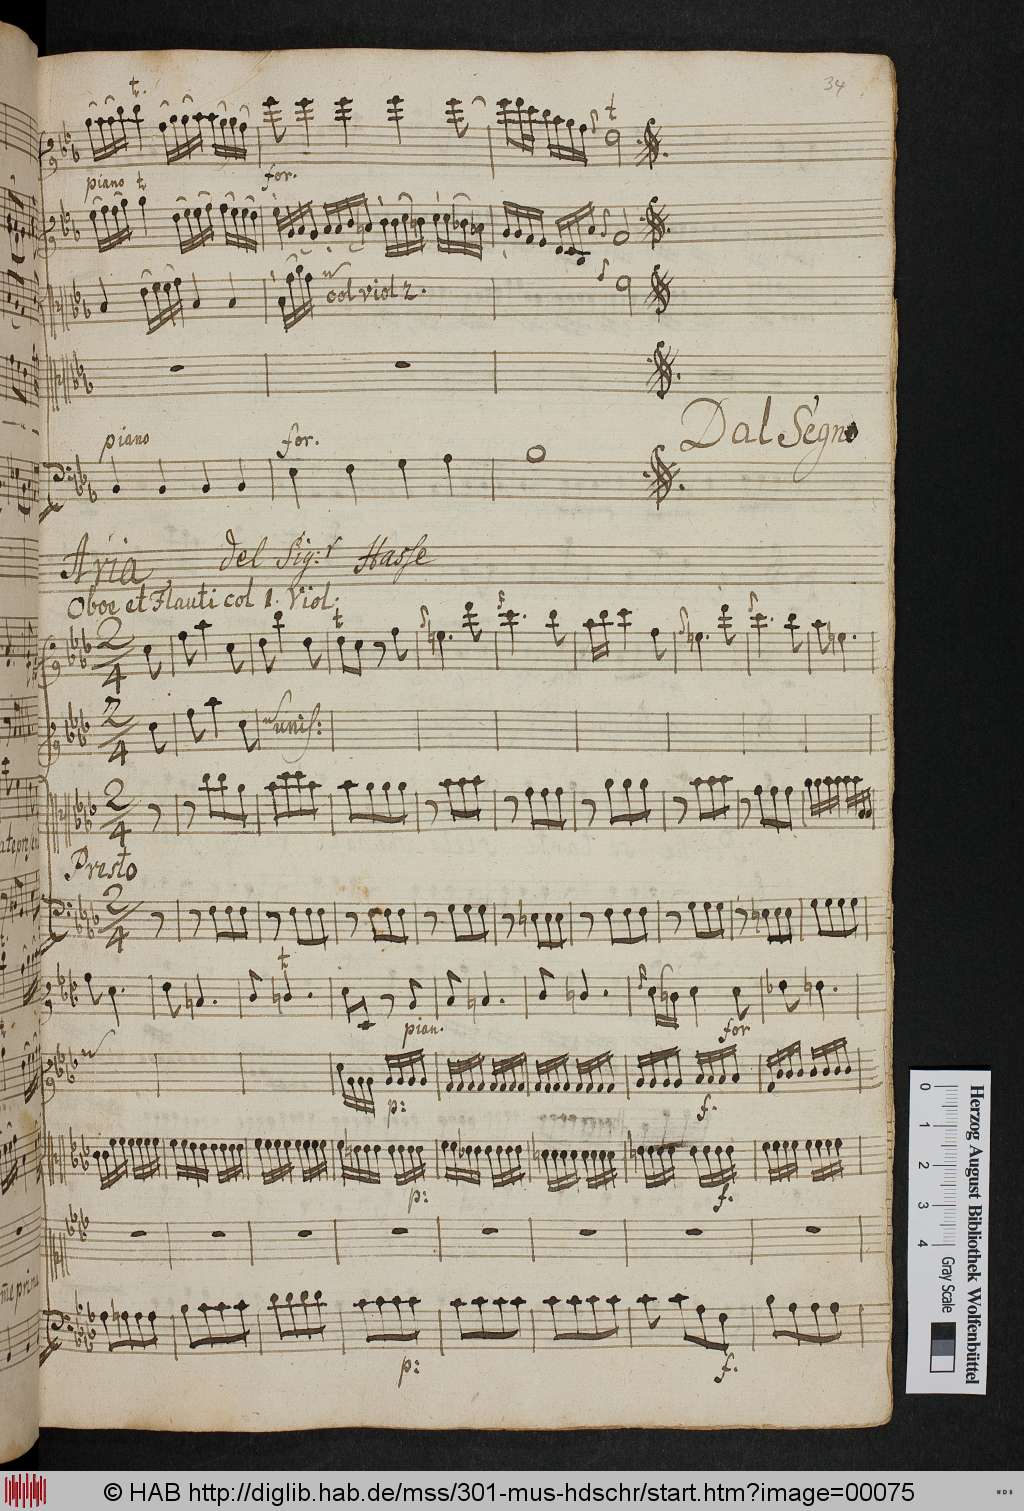 34
t.
t
piano t
for.
col viol 2.
Dal Segno
piano
for.
Aria del Sig:r Hasse
Oboe et Flauti col 1. Viol:
t
2/4
2/4
unis:
2/4
Presto
2/4
t
pian.
for
p:
f.
p:
f.
p:
f.
0 1 2 3 4
Herzog August Bibliothek Wolfenbüttel
Gray Scale
© HAB http://diglib.hab.de/mss/301-mus-hdschr/start.htm?image=00075